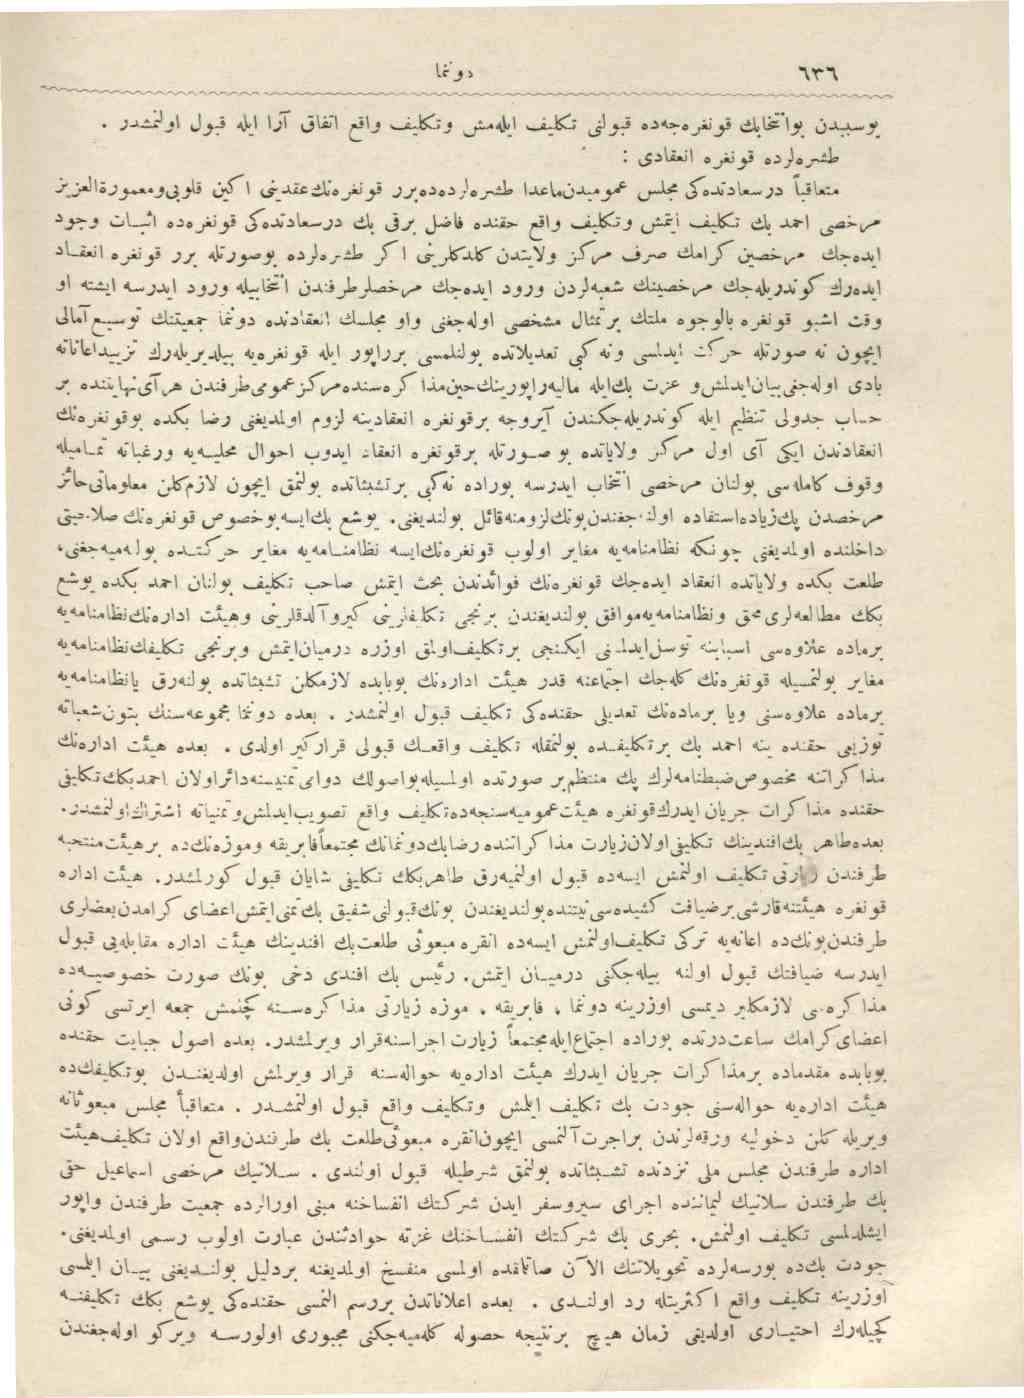 ٦٣٦
دوننما
بوسببدن بوانتخابك قونغره‌جه‌ده قبولنی تكلیف ایله‌مش وتكلیف واقع اتفاق آرا ایله قبول اولنمشدر .
طشره‌لرده قونغره انعقادی :
متعاقباً درسعادتده‌كی مجلس عمومیدن‌ماعدا طشره‌لرده‌ده‌برر قونغره‌نك‌عقدینی اكین قلوبی‌ومعمورةالعزیز
مرخصی احمد بك تكلیف ایتمش وتكلیف واقع حقنده فاضل برقی بك درسعادتده‌كی قونغره‌ده اثبات وجود
ایده‌جك مرخصین كرامك صرف مركز ولایتدن كلدكلرینی اكر طشره‌لرده بوصورتله برر قونغره انعقاد
ایده‌رك كوندریله‌جك مرخصینك شعبه‌لردن ورود ایده‌جك مرخصلرطرفندن انتخابیله ورود ایدرسه ایشته او
وقت اشبو قونغره بالوجوه ملتك برتمثال مشخصی اوله‌جغنی واو مجلسك انعقادنده دوننما جمعیتنك توسیع آمالی
ایچون نه صورتله حركت ایدلمسی ونه‌كبی تعدیلاتده بولنلمسی برراپور ایله قونغره‌یه بیلدیریله‌رك تزییداعاناته
بادی اوله‌جغی‌بیان‌ایدلمش‌و عزت بك‌ایله مالیه‌راپورینك‌حین‌مذاكره‌سنده‌مركزعمومی‌طرفندن هرآی‌نهایتنده بر
حساب جدولی تنظیم ایله كوندریله‌جكندن آیروجه برقونغره انعقادینه لزوم اولمدیغنی رضا بكده بوقونغره‌نك
انعقادندن ایكی آی اول مركز ولایاتده بو صورتله برقونغره انعقاد ایدوب احوال محلیه‌یه ورغباته تمامیله
وقوف كامله‌سی بولنان مرخصی انتخاب ایدرسه بوراده نه‌كبی برتشبثاتده بولنمق ایچون لازم‌كلن معلوماتی‌حائز
مرخصدن پك‌زیاده‌استفاده اولنه‌جغندن‌بونك‌لزومنه‌قائل بولندیغنی. یوشع بك‌ایسه‌بوخصوص قونغره‌نك صلاحیتی
داخلنده اولمدیغنی چونكه نظامنامه‌یه مغایر اولوب قونغره‌نك‌ایسه نظامنامه‌یه مغایر حركتده بولنه‌میه‌جغنی،
طلعت بكده ولایاتده انعقاد ایده‌جك قونغره‌نك فوائدندن بحث ایتمش صاحب تكلیف بولنان احمد بكده یوشع
بكك مطالعه‌لری محق ونظامنامه‌یه‌موافق بولندیغندن برنجی تكلیفلرینی كیروآلدقلرینی وهیئت اداره‌نك‌نظامنامه‌یه
برماده علاوه‌سی اسبابنه توسل‌ایدلمسنی ایكنجی برتكلیف‌اولمق اوزره درمیان‌ایتمش وبرنجی تكلیفك‌نظامنامه‌یه
مغایر بولنمسیله قونغره‌نك كله‌جك اجتماعنه قدر هیئت اداره‌نك بوبابده لازمكلن تشبثاتده بولنه‌رق یانظامنامه‌یه
برماده علاوه‌سنی ویا برماده‌نك تعدیلی حقنده‌كی تكلیف قبول اولنمشدر . بعده دوننما مجموعه‌سنك بتون‌شعباته
توزیعی حقنده ینه احمد بك برتكلیفده بولنمقله تكلیف واقعك قبولی قراركیر اولدی . بعده هیئت اداره‌نك
مذاكراتنه مخصوص‌ضبطنامه‌لرك پك منتظم‌بر صورتده اولمسیله‌بواصولك دوامی‌تمنیسنه‌دائراولان احمدبكك‌تكلیفی
حقنده مذاكرات جریان ایدرك‌قونغره هیئت‌عمومیه‌سنجه‌ده‌تكلیف واقع تصویب‌ایدلمش‌وتمنیاته اشتراك‌اولنمشدر.
بعده‌طاهر بك‌افندینك تكلیفی‌اولان‌زیارت مذاكراتنده رضابك‌دوننمانك مجتمعاًفابریقه وموزه‌نك‌ده برهیئت‌منتخبه
طرفندن زیارتی تكلیف اولنمش ایسه‌ده قبول اولنمیه‌رق طاهربكك تكلیفی شایان قبول كورلمشدر. هیئت اداره
قونغره هیئتنه‌قارشی‌برضیافت كشیده‌سی‌نیتنده‌بولندیغندن بونك‌قبولنی‌شفیق بك‌تمنی‌ایتمش‌اعضای كرامدن‌بعضلری
طرفندن‌بونك‌ده اعانه‌یه تركی تكلیف‌اولنمش ایسه‌ده انقره مبعوثی طلعت‌بك افندینك هیئت اداره مقابله‌یی قبول
ایدرسه ضیافتك قبول اولنه بیله‌جكنی درمیان ایتمش. رئیس بك افندی دخی بونك صورت خصوصیه‌ده
مذاكره‌سی لازمكلیر دیمسی اوزرینه دوننما ، فابریقه ، موزه زیارتی مذاكره‌سنه كچنمش جمعه ایرتسی كونی
اعضای‌كرامك ساعت‌درتده بوراده اجتماع‌ایله‌مجتمعاً زیارت اجراسنه‌قرار ویرلمشدر. بعده اصول جبایت حقنده
بوبابده مقدماده برمذاكرات جریان ایدرك هیئت اداره‌یه حواله‌سنه قرار ویرلمش اولدیغندن بوتكلیفك‌ده
هیئت اداره‌یه حواله‌سنی جودت بك تكلیف ایلمش وتكلیف واقع قبول اولنمشدر . متعاقباً مجلس مبعوثانه
ویریله كلن دخولیه ورقه‌لرندن براجرت‌آلنمسی ایچون‌انقره مبعوثی‌طلعت بك طرفندن‌واقع اولان تكلیف‌هیئت
اداره طرفندن مجلس ملی نزدنده تشبثاتده بولنمق شرطیله قبول اولندی . سلانیك مرخصی اسماعیل حقی
بك طرفندن سلانیك لیماننده اجرای سیروسفر ایدن شركتك انفساخنه مبنی اورالرده جمعیت طرفندن واپور
ایشلدلمسی تكلیف اولنمش. بحری بك شركتك انفساخنك غزته حوادثندن عبارت اولوب رسمی اولمدیغنی.
جودت بك‌ده بورسه‌لرده تحویلاتنك الآن صاتلمقده اولمسی منفسخ اولمدیغنه بردلیل بولندیغنی بیان ایلمسی
اوزرینه تكلیف واقع اكثریتله رد اولندی . بعده اعلاناتدن بررسم النمسی حقنده‌كی یوشع بكك تكلیفنه
كچیله‌رك احتیاری اولدیغی زمان هیچ برنتیجه حصوله كله‌میه‌جكنی مجبوری اولورسه ویركو اوله‌جغندن